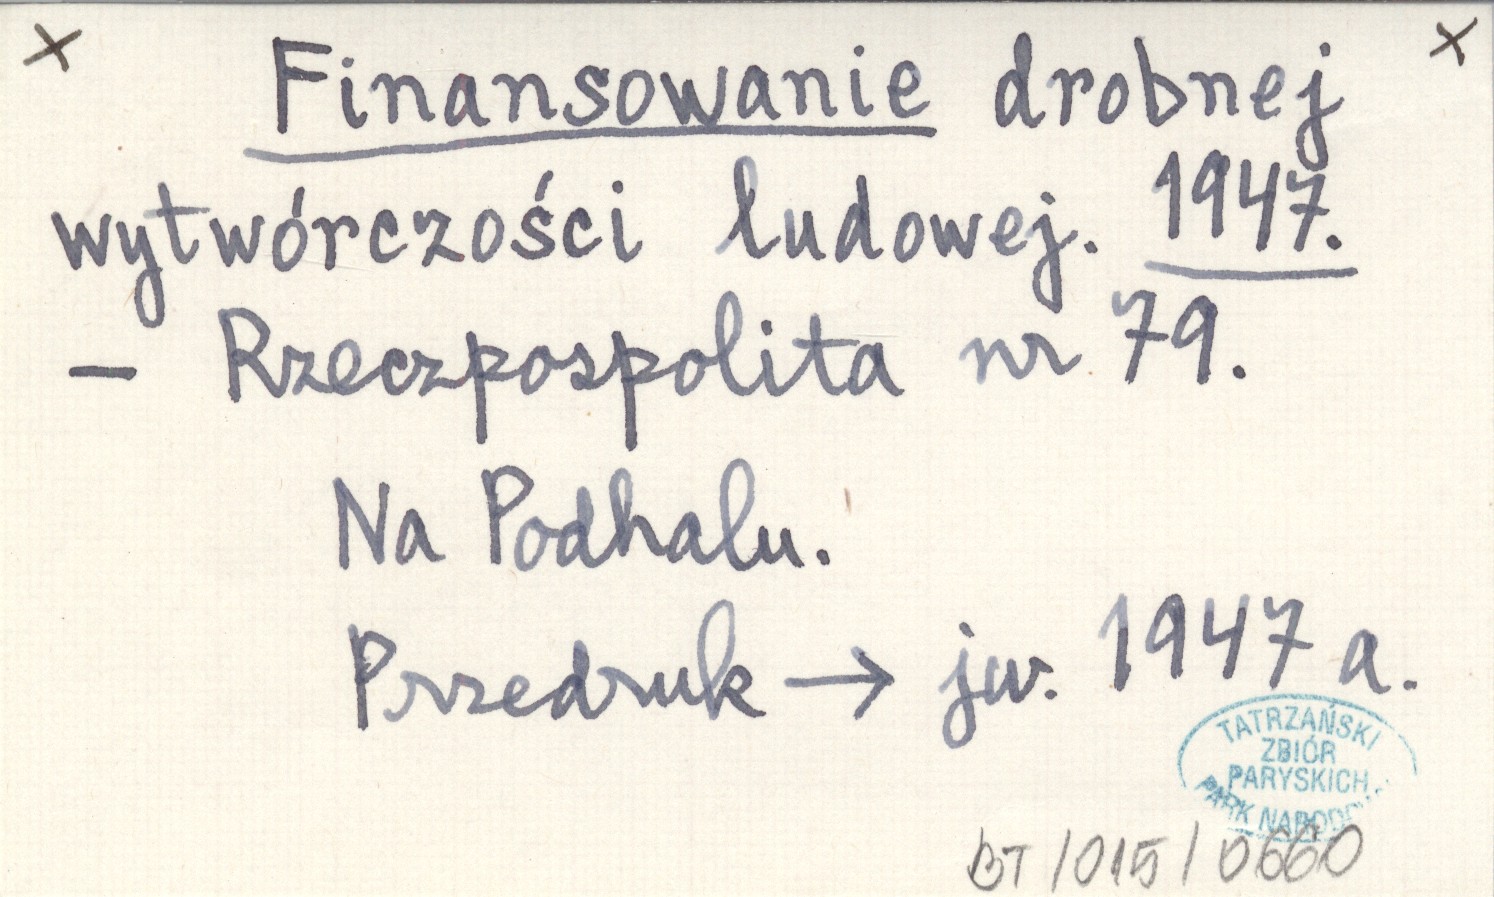 x x
Finansowanie drobnej
wytwórczości ludowej. 1947.
– Rzeczpospolita nr 79.
Na Podhalu.
Przedruk → jw. 1947 a.
TATRZAŃSKI
ZBIÓR
PARYSKICH
PARK NARODO
BT/015/0660